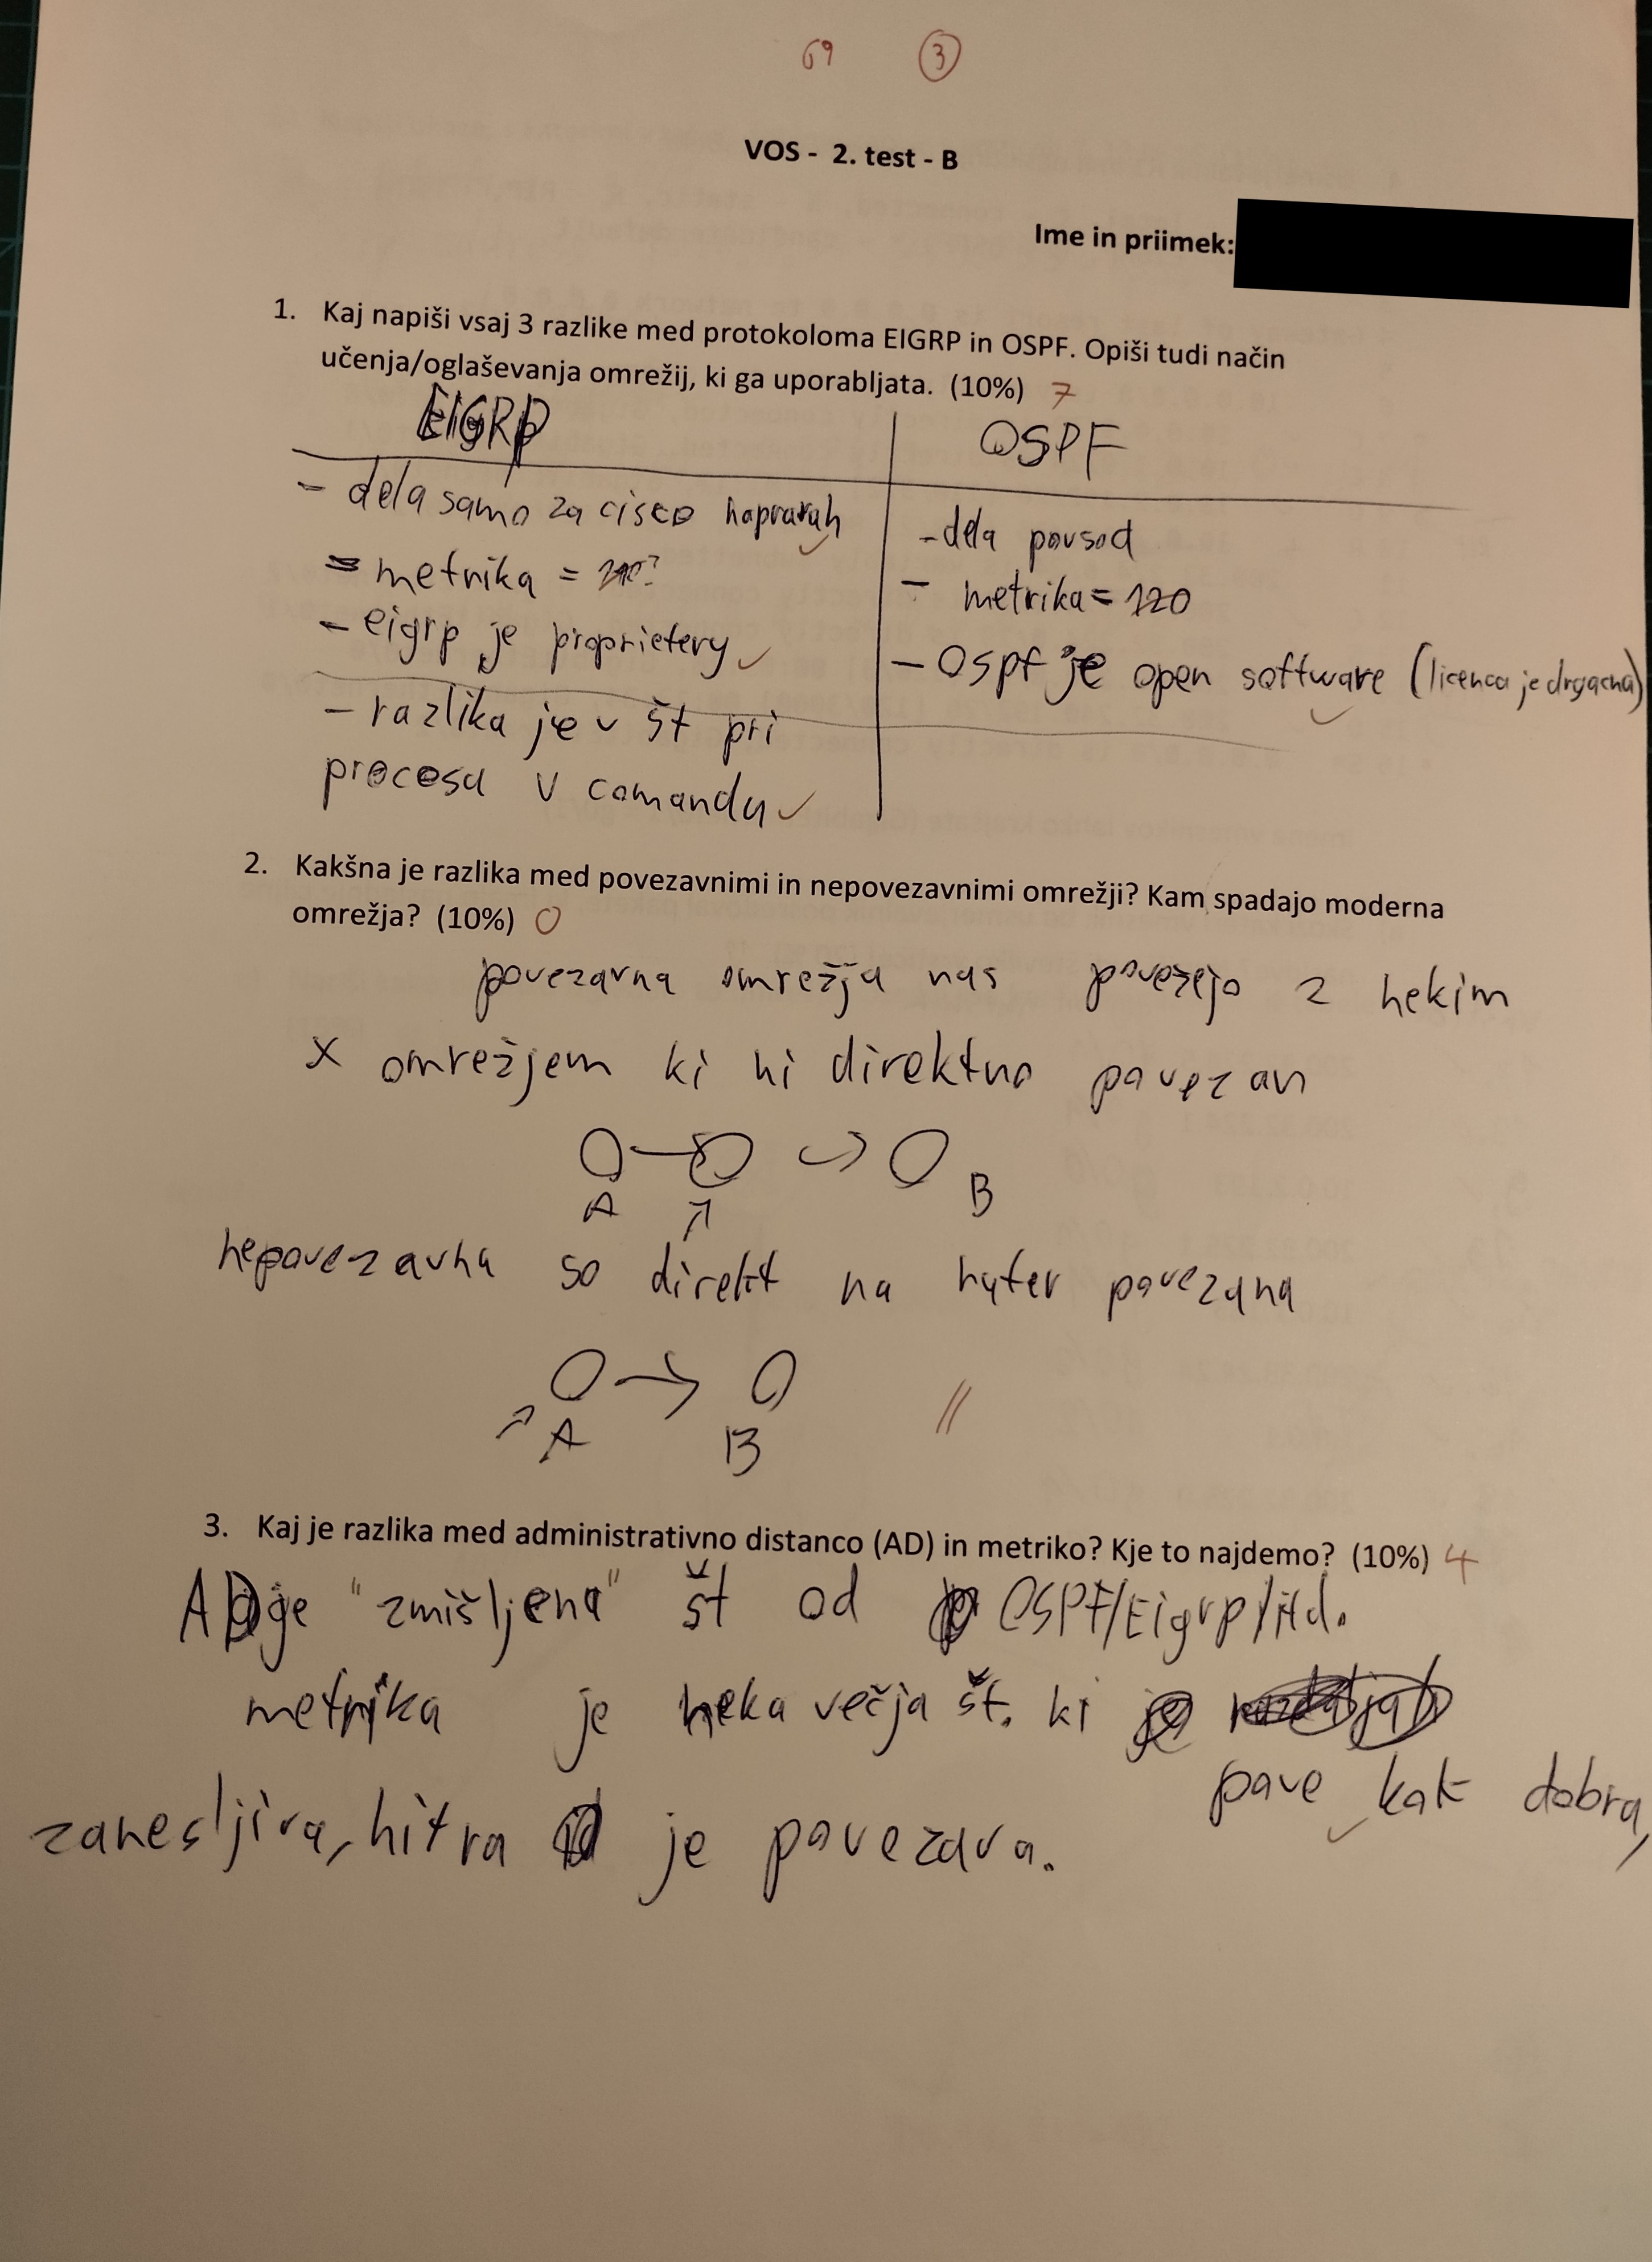 69 3
VOS - 2. test - B
Ime in priimek:
1. Kaj napiši vsaj 3 razlike med protokoloma EIGRP in OSPF. Opiši tudi način
učenja/oglaševanja omrežij, ki ga uporabljata. (10%) 7
EIGRP
- dela samo za cisco napravah
- metrika =
- eigrp je proprietery
- razlika je v št pri
procesu v comandu
OSPF
- dela povsod
- metrika = 120
- Ospf je open software (licenca je drgacna)
2. Kakšna je razlika med povezavnimi in nepovezavnimi omrežji? Kam spadajo moderna
omrežja? (10%) 0
povezavna omrežja nas povežejo z nekim
x omrežjem ki ni direktno povezan
A B
nepovezavna so direkt na ruter povezana
A B
3. Kaj je razlika med administrativno distanco (AD) in metriko? Kje to najdemo? (10%) 4
AD je "zmišljena" št od OSPF/Eigrp/itd.
metrika je neka večja št. ki
pove kak dobra,
zanesljiva, hitra je povezava.